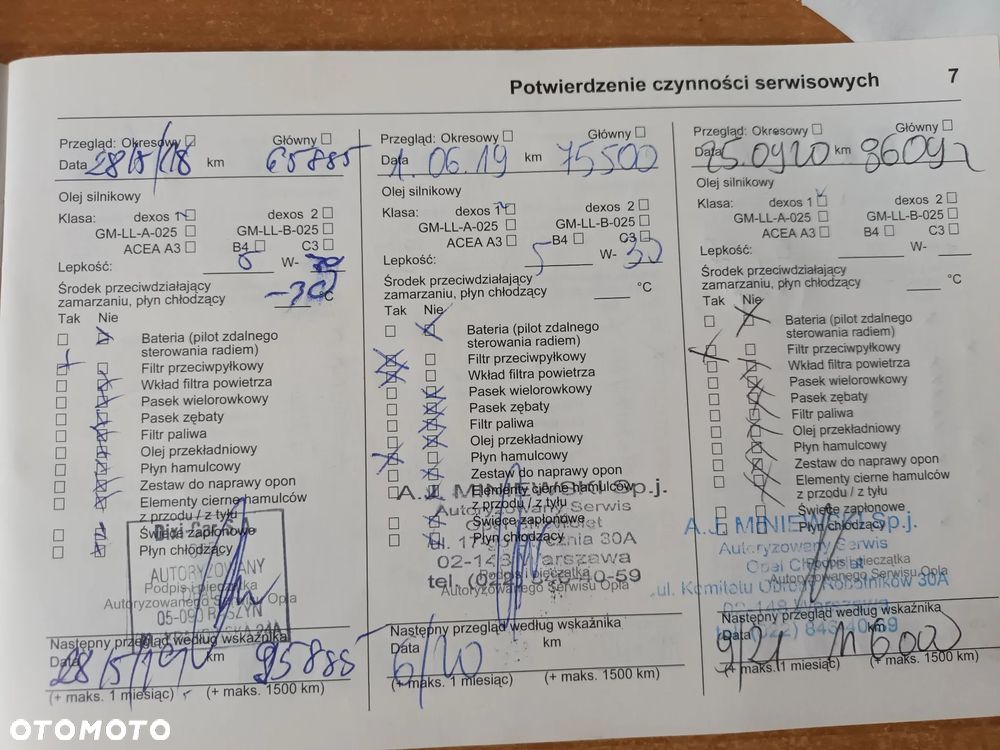 Potwierdzenie czynności serwisowych 7
Przegląd: Okresowy Główny
Data 28/5/18 km 65885
Olej silnikowy
Klasa: dexos 1 dexos 2
GM-LL-A-025 GM-LL-B-025
ACEA A3 B4 C3
Lepkość: W-
Środek przeciwdziałający
zamarzaniu, płyn chłodzący °C
Tak Nie
Bateria (pilot zdalnego
sterowania radiem)
Filtr przeciwpyłkowy
Wkład filtra powietrza
Pasek wielorowkowy
Pasek zębaty
Filtr paliwa
Olej przekładniowy
Płyn hamulcowy
Zestaw do naprawy opon
Elementy cierne hamulców
z przodu / z tyłu
Świece zapłonowe
Płyn chłodzący
Dixi-Car S.A.
AUTORYZOWANY
Podpis i pieczątka
Autoryzowanego Serwisu Opla
05-090 RASZYN
Następny przegląd według wskaźnika
Data 28/5/19 km 95885
(+ maks. 1 miesiąc) (+ maks. 1500 km)
Przegląd: Okresowy Główny
Data 1.06.19 km 75500
Olej silnikowy
Klasa: dexos 1 dexos 2
GM-LL-A-025 GM-LL-B-025
ACEA A3 B4 C3
Lepkość: 5 W-30
Środek przeciwdziałający
zamarzaniu, płyn chłodzący °C
Tak Nie
Bateria (pilot zdalnego
sterowania radiem)
Filtr przeciwpyłkowy
Wkład filtra powietrza
Pasek wielorowkowy
Pasek zębaty
Filtr paliwa
Olej przekładniowy
Płyn hamulcowy
Zestaw do naprawy opon
Elementy cierne hamulców
z przodu / z tyłu
Świece zapłonowe
Płyn chłodzący
A.J. MINIEWSKI Sp.j.
Autoryzowany Serwis
Opel Chevrolet
02-148 Warszawa
Podpis i pieczątka
Autoryzowanego Serwisu Opla
Następny przegląd według wskaźnika
Data 6/20 km
(+ maks. 1 miesiąc) (+ maks. 1500 km)
Przegląd: Okresowy Główny
Data 25.09.20 km 86092
Olej silnikowy
Klasa: dexos 1 dexos 2
GM-LL-A-025 GM-LL-B-025
ACEA A3 B4 C3
Lepkość: W-
Środek przeciwdziałający
zamarzaniu, płyn chłodzący °C
Tak Nie
Bateria (pilot zdalnego
sterowania radiem)
Filtr przeciwpyłkowy
Wkład filtra powietrza
Pasek wielorowkowy
Pasek zębaty
Filtr paliwa
Olej przekładniowy
Płyn hamulcowy
Zestaw do naprawy opon
Elementy cierne hamulców
z przodu / z tyłu
Świece zapłonowe
Płyn chłodzący
A.J. MINIEWSKI Sp.j.
Autoryzowany Serwis
Opel Chevrolet
Podpis i pieczątka
Autoryzowanego Serwisu Opla
ul. Komitetu Obrony Robotników 30A
02-148 Warszawa
Następny przegląd według wskaźnika
Data 9/21 km
(+ maks. 1 miesiąc) (+ maks. 1500 km)
OTOMOTO